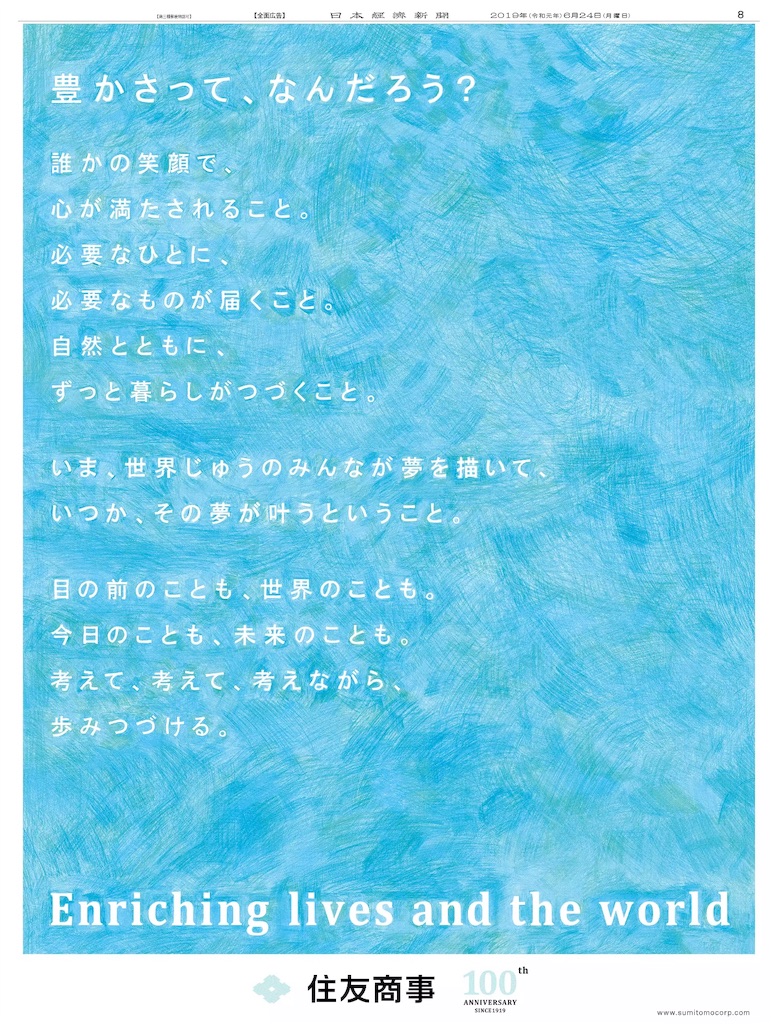 【全面広告】 日本経済新聞 2019年(令和元年)6月24日(月曜日) 8
豊かさって、なんだろう?
誰かの笑顔で、
心が満たされること。
必要なひとに、
必要なものが届くこと。
自然とともに、
ずっと暮らしがつづくこと。
いま、世界じゅうのみんなが夢を描いて、
いつか、その夢が叶うということ。
目の前のことも、世界のことも。
今日のことも、未来のことも。
考えて、考えて、考えながら、
歩みつづける。
Enriching lives and the world
住友商事 100th
ANNIVERSARY
SINCE1919
www.sumitomocorp.com